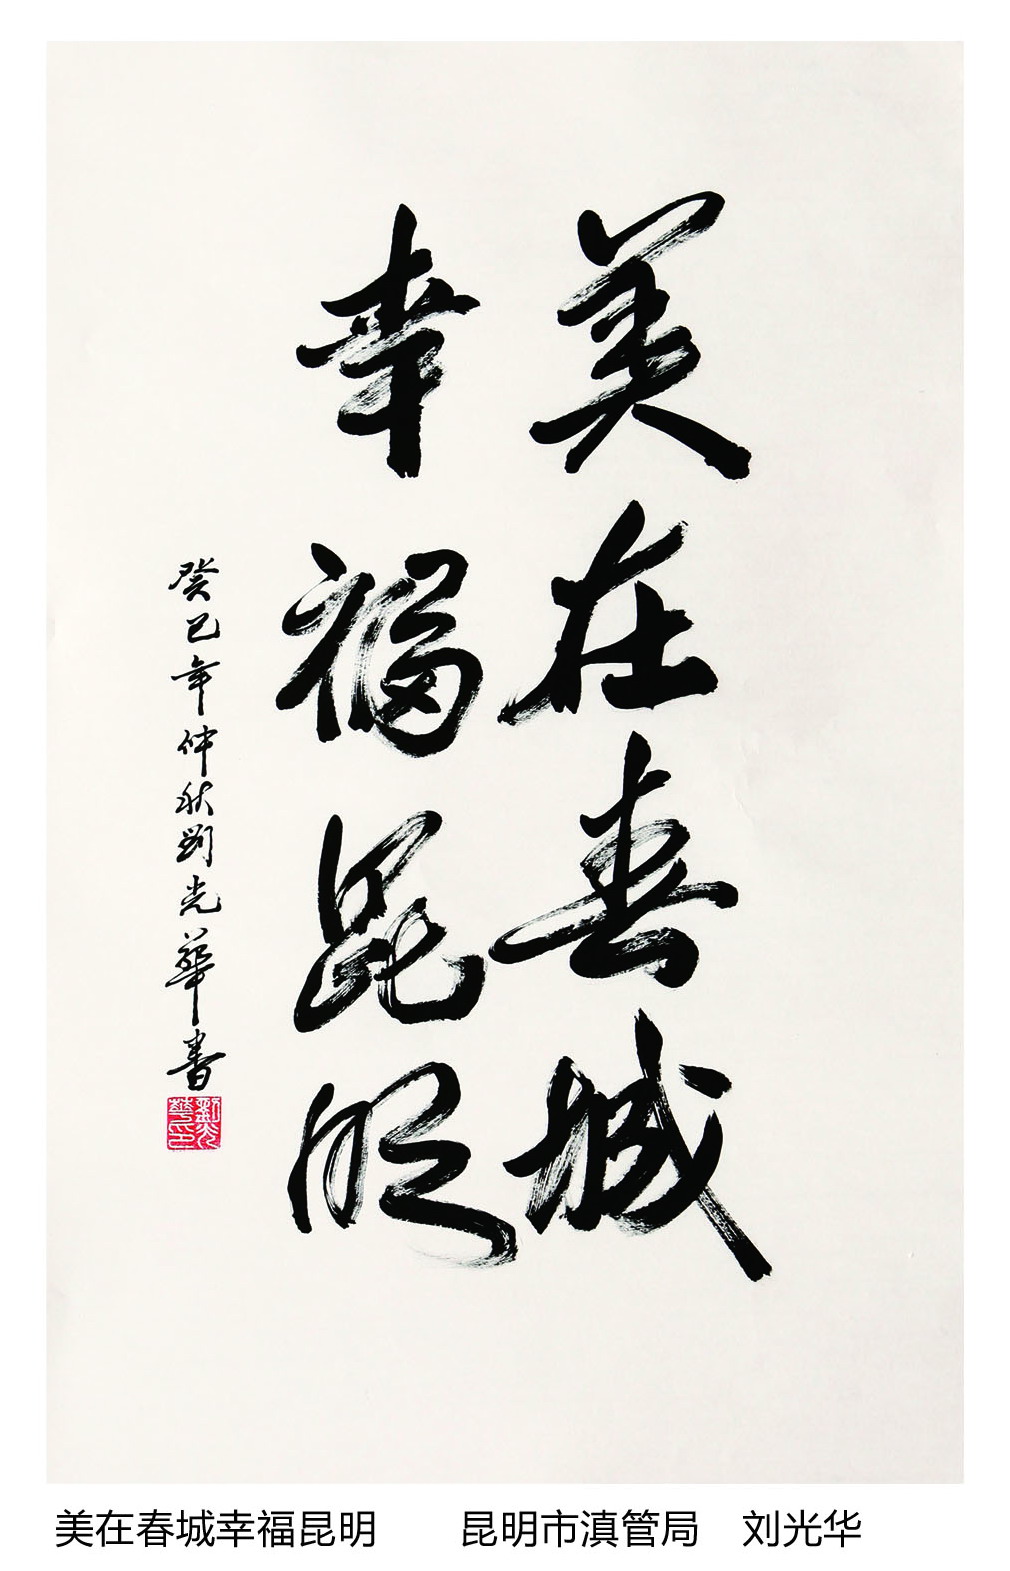 美在春城
幸福昆明
癸巳年仲秋劉光華書
劉光華印
美在春城幸福昆明 昆明市滇管局 刘光华